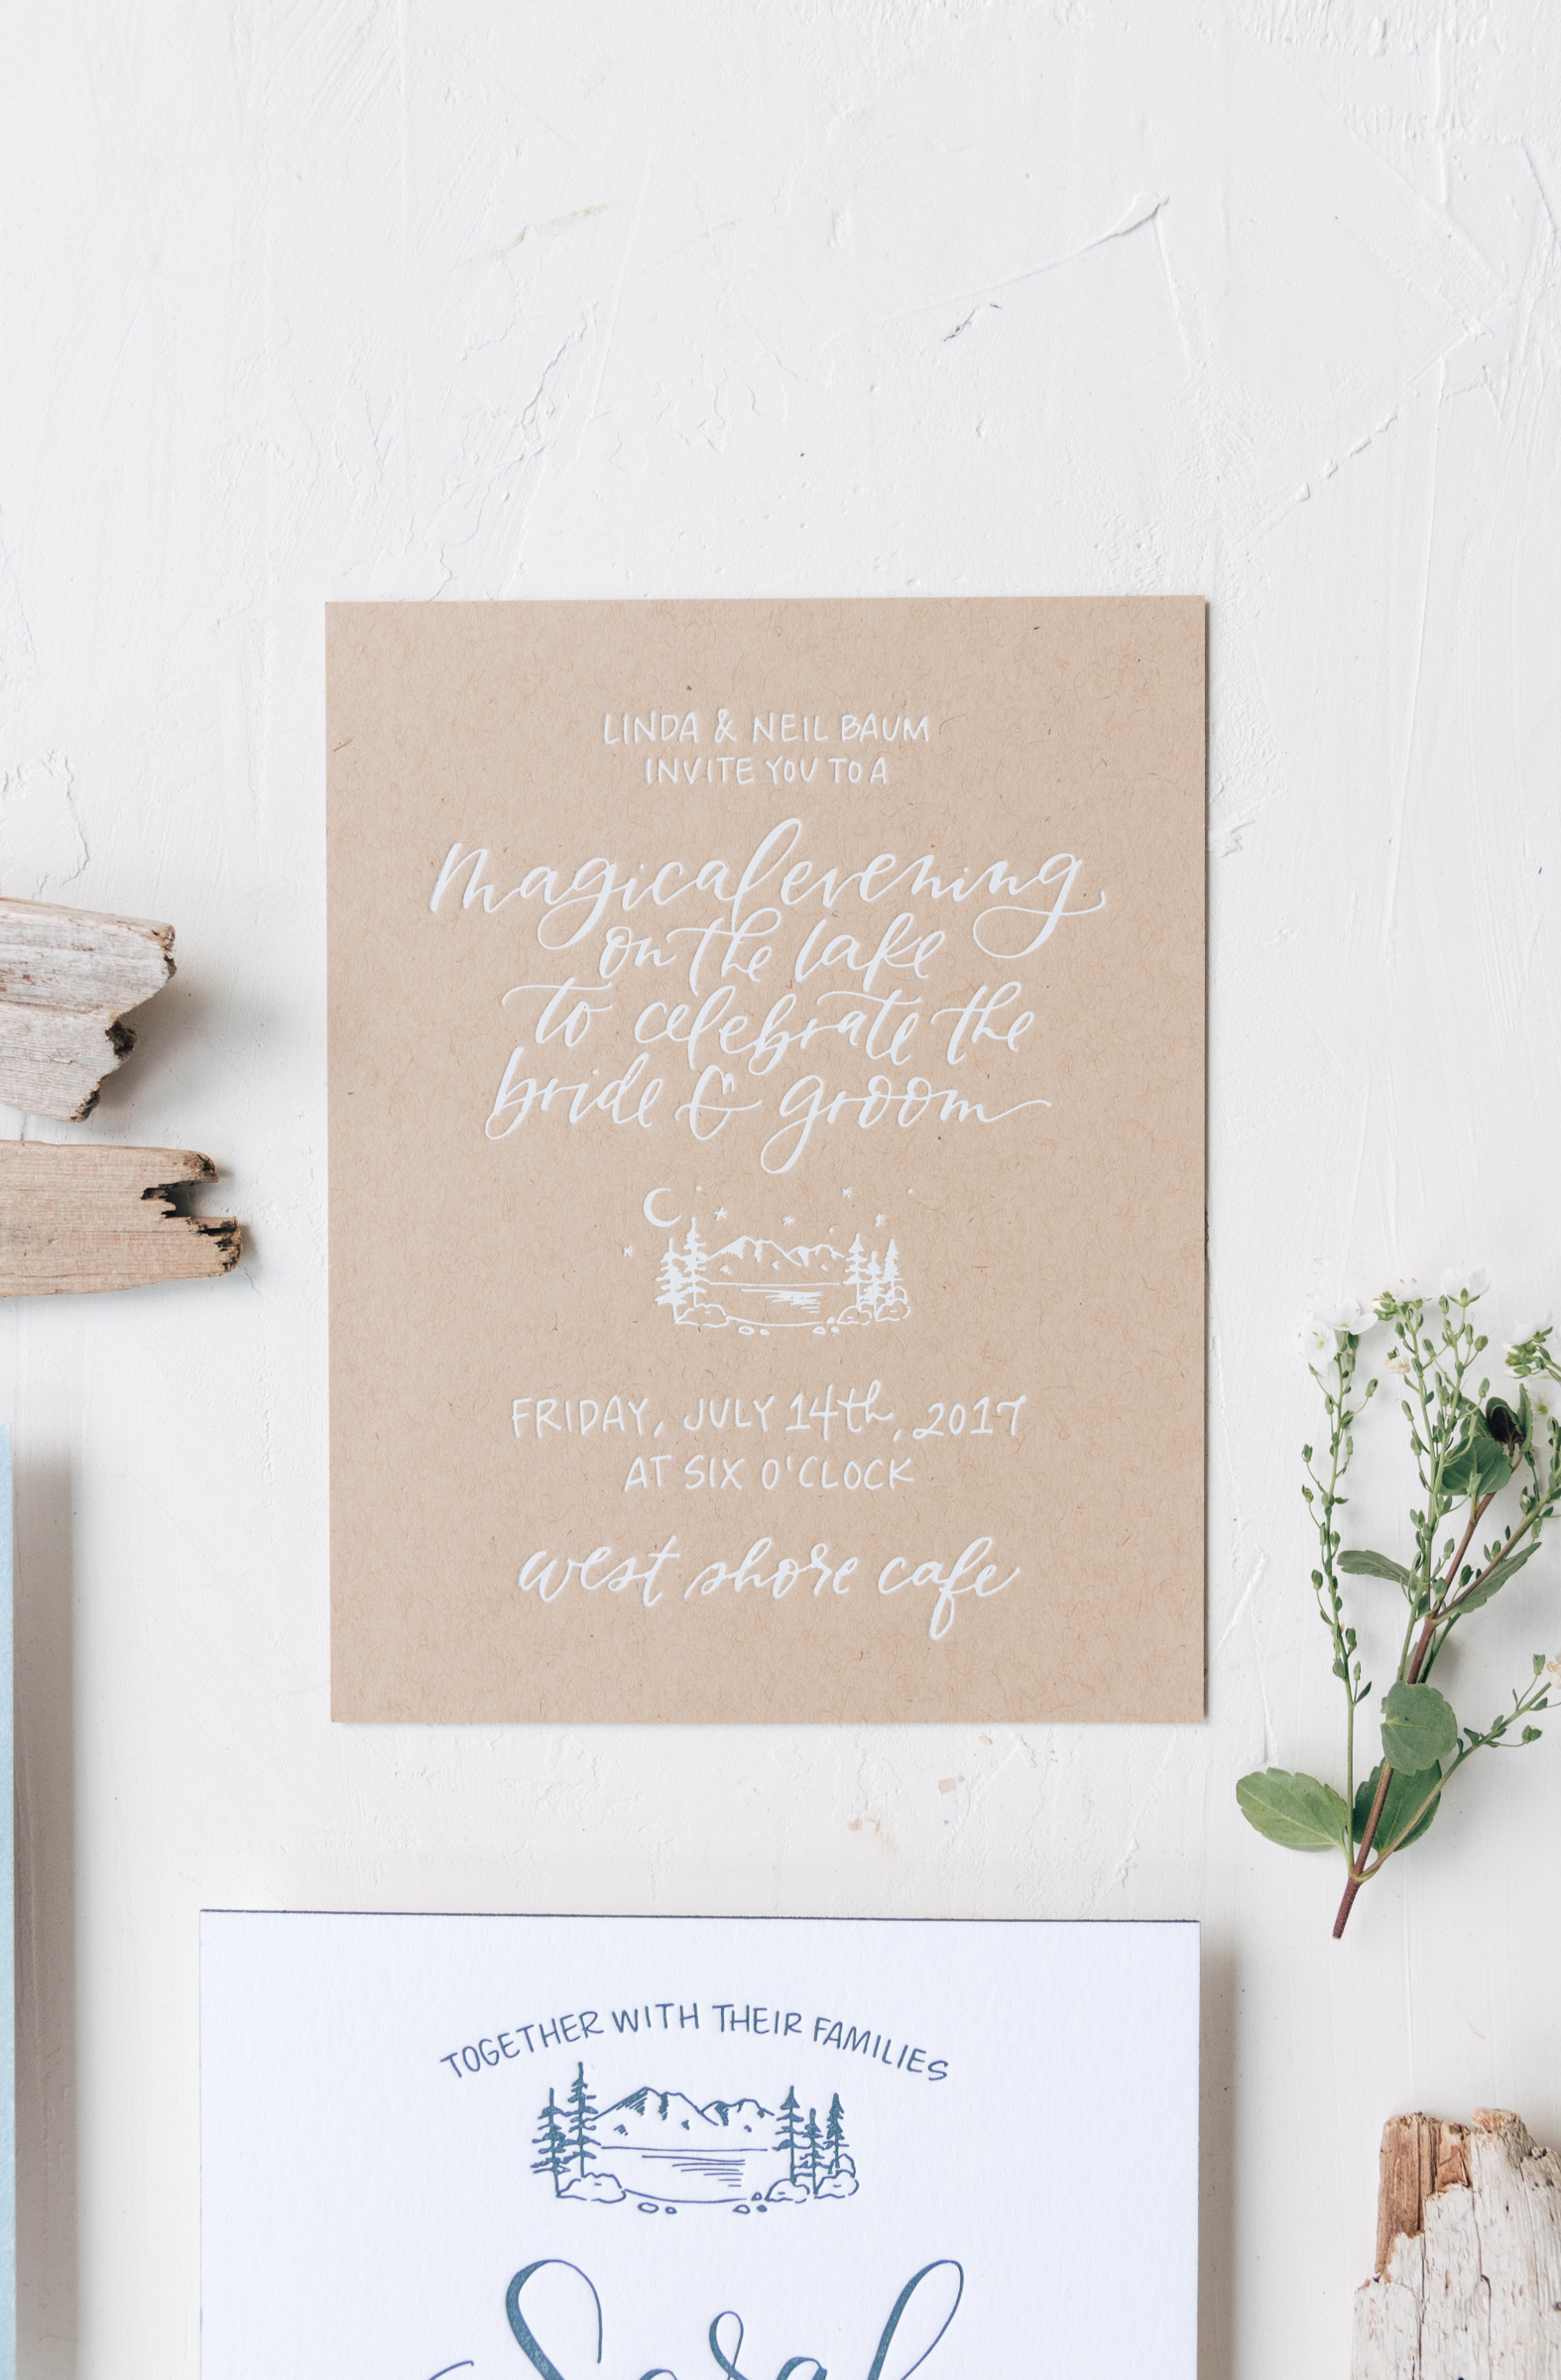 LINDA & NEIL BAUM
INVITE YOU TO A
magical evening
on the lake
to celebrate the
bride & groom
FRIDAY, JULY 14th, 2017
AT SIX O'CLOCK
west shore cafe
TOGETHER WITH THEIR FAMILIES